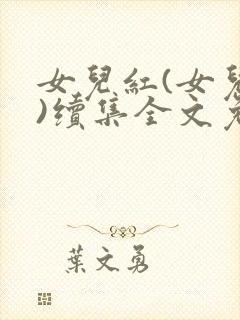 女兒紅(女兒
)續集全文
葉文勇